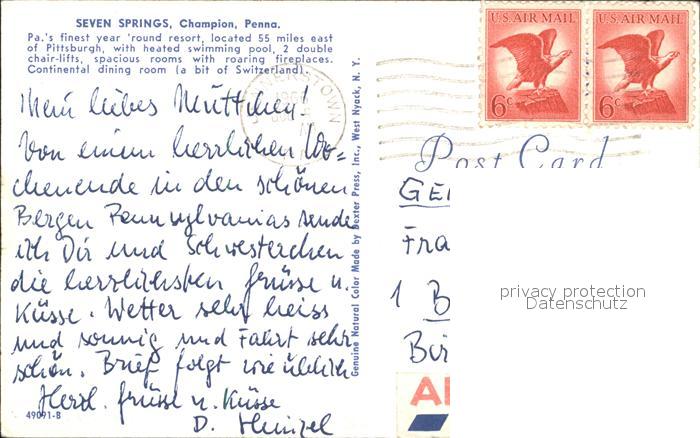 SEVEN SPRINGS, Champion, Penna.
Pa.'s finest year 'round resort, located 55 miles east
of Pittsburgh, with heated swimming pool, 2 double
chair-lifts, spacious rooms with roaring fireplaces.
Continental dining room (a bit of Switzerland).
Mein liebes Muttchen!
Von einem herrlichen Wo=
chenende in den schönen
Bergen Pennsylvanias sende
ich Dir und Schwesterchen
die herzlichsten Grüsse u.
Küsse. Wetter sehr heiss
und sonnig und Fahrt sehr
schön. Brief folgt wie üblich
Herzl. Grüsse u. Küsse
D. Heinzel
49091-B
Genuine Natural Color Made by Dexter Press, Inc., West Nyack, N. Y.
U.S. AIR MAIL
6c
U.S. AIR MAIL
6c
Post Card
GE
Fra
1 B
Bir
privacy protection
Datenschutz